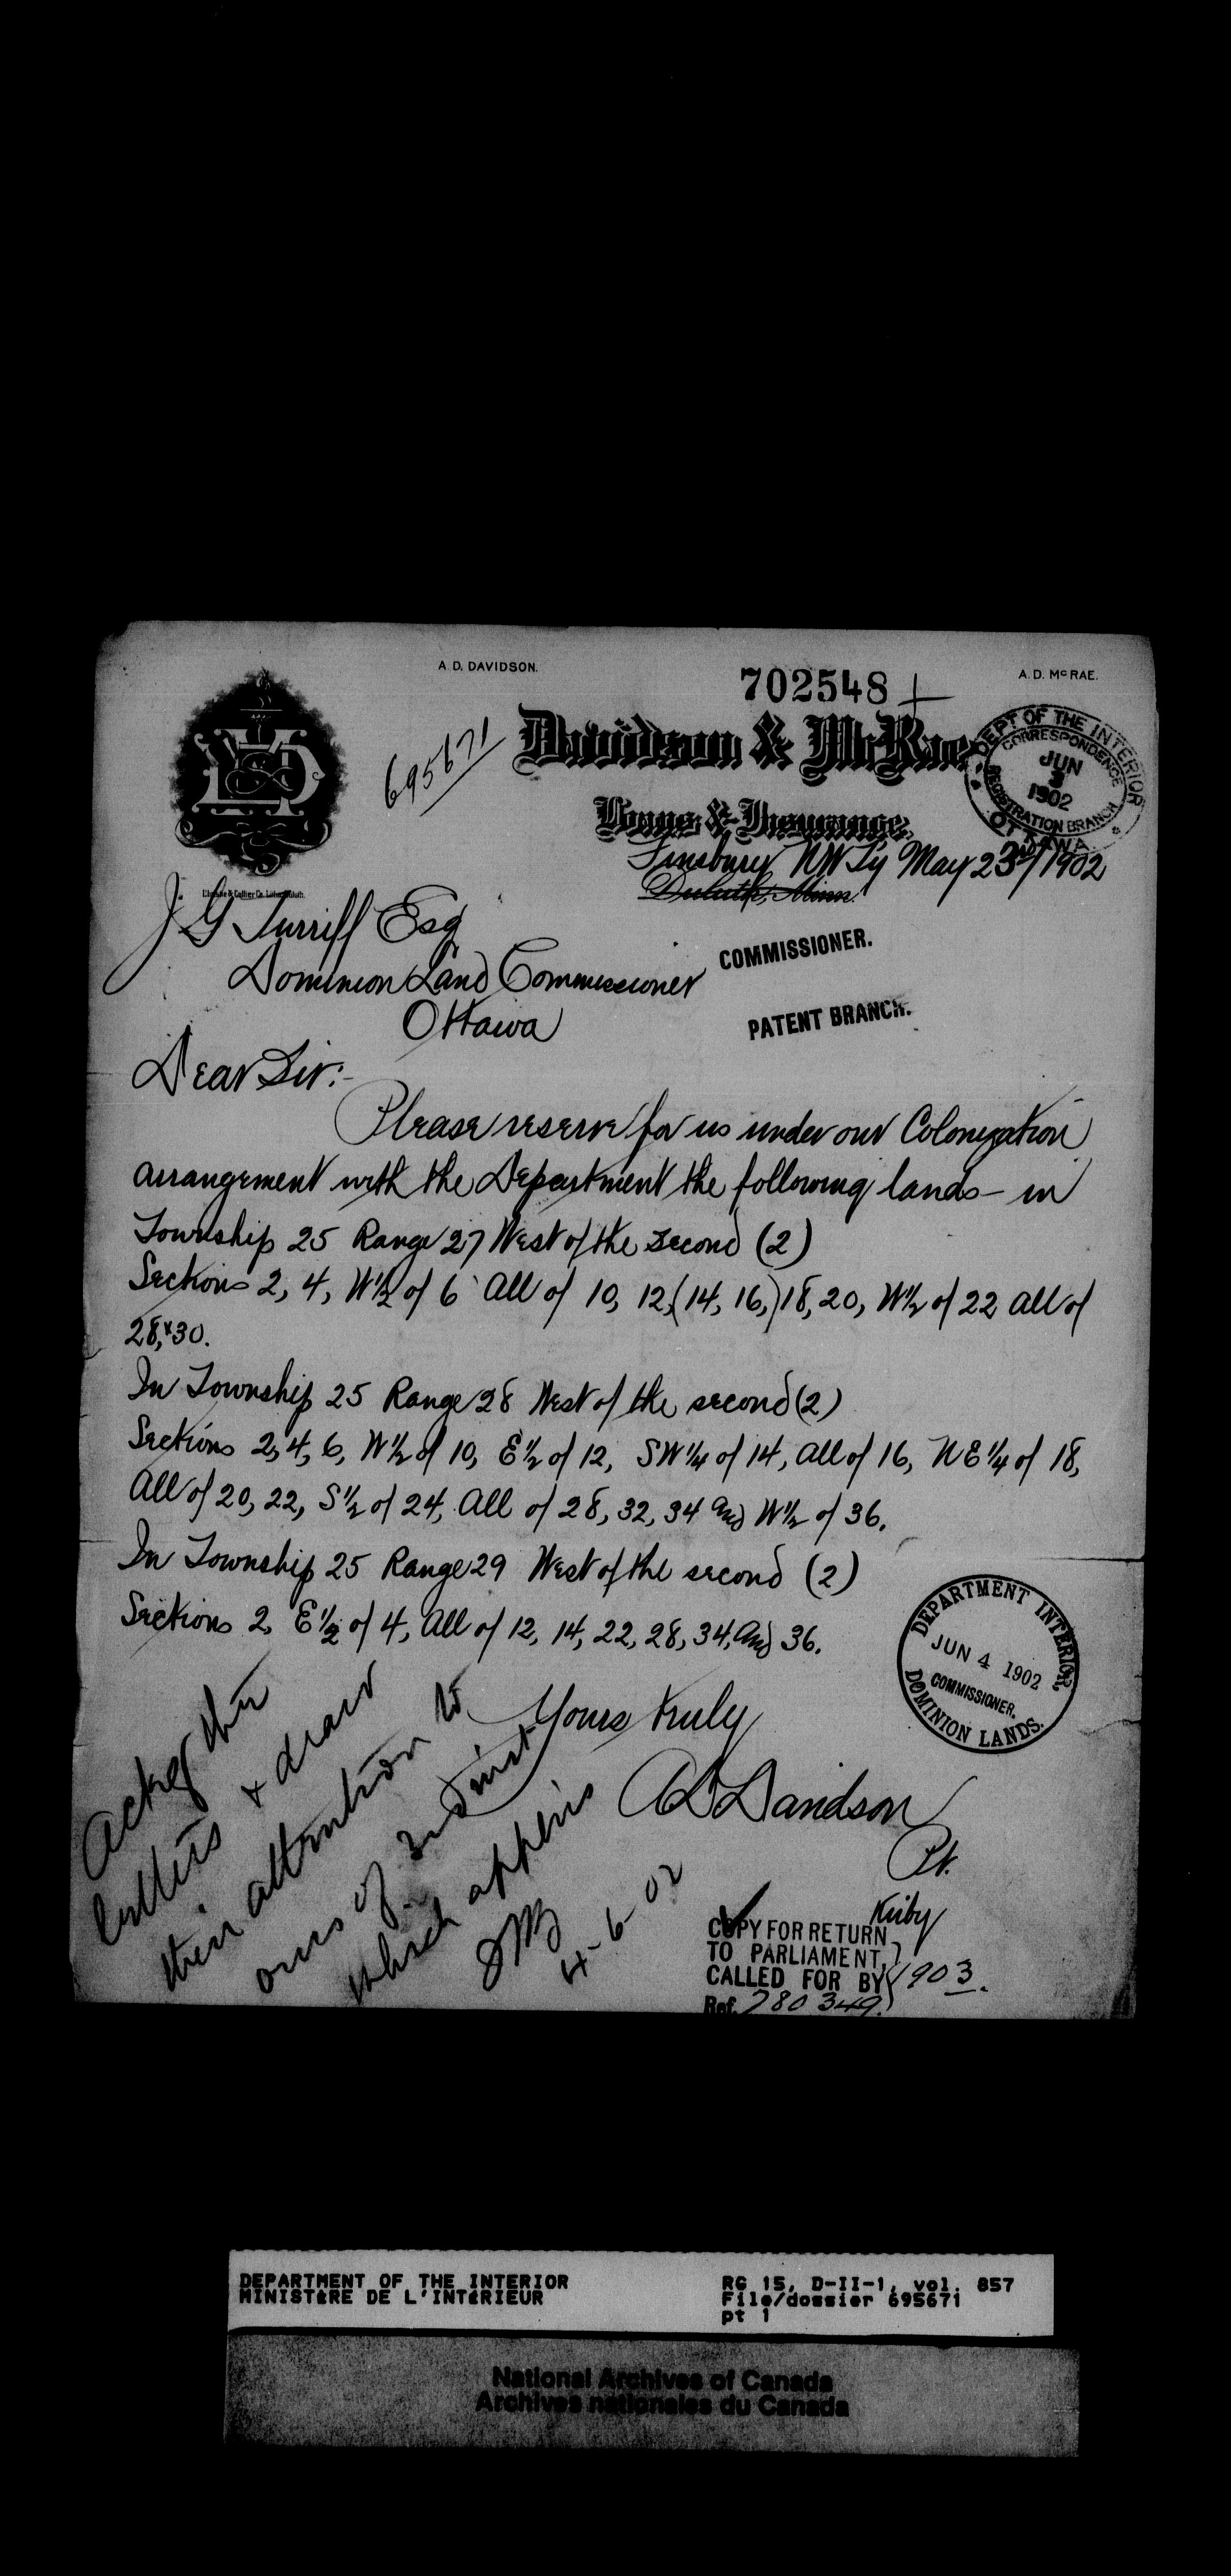 A. D. DAVIDSON.
702548
A. D. McRAE.
695671
Davidson & McRae
Loans & Insurance,
DEPT OF THE INTERIOR
CORRESPONDENCE
JUN
3
1902
REGISTRATION BRANCH
OTTAWA
NW Ty May 23rd/1902
Duluth, Minn.
J. G Turriff Esq
Dominion Land Commissioner
Ottawa
COMMISSIONER.
PATENT BRANCH.
Dear Sir:-
Please reserve for us under our Colonization
arrangement with the Department the following lands - in
Township 25 Range 27 West of the second (2)
Sections 2, 4, W½ of 6 All of 10, 12, (14, 16,) 18, 20, W½ of 22 All of
28, & 30.
In Township 25 Range 28 West of the second (2)
Sections 2, 4, 6, W½ of 10, E½ of 12, SW¼ of 14, All of 16, NE¼ of 18,
All of 20, 22, S½ of 24, All of 28, 32, 34 and W½ of 36.
In Township 25 Range 29 West of the second (2)
Sections 2, E½ of 4, All of 12, 14, 22, 28, 34, and 36.
DEPARTMENT INTERIOR
JUN 4 1902
COMMISSIONER.
DOMINION LANDS.
Yours truly
A D Davidson
Ackg this
letters & draw
their attention to
ours of 2nd inst
which appears
4-6-02
Kirby
COPY FOR RETURN
TO PARLIAMENT,
CALLED FOR BY 1903.
Ref. 780349.
DEPARTMENT OF THE INTERIOR
MINISTÈRE DE L'INTÉRIEUR
RG 15, D-II-1, vol. 857
File/dossier 695671
pt 1
National Archives of Canada
Archives nationales du Canada